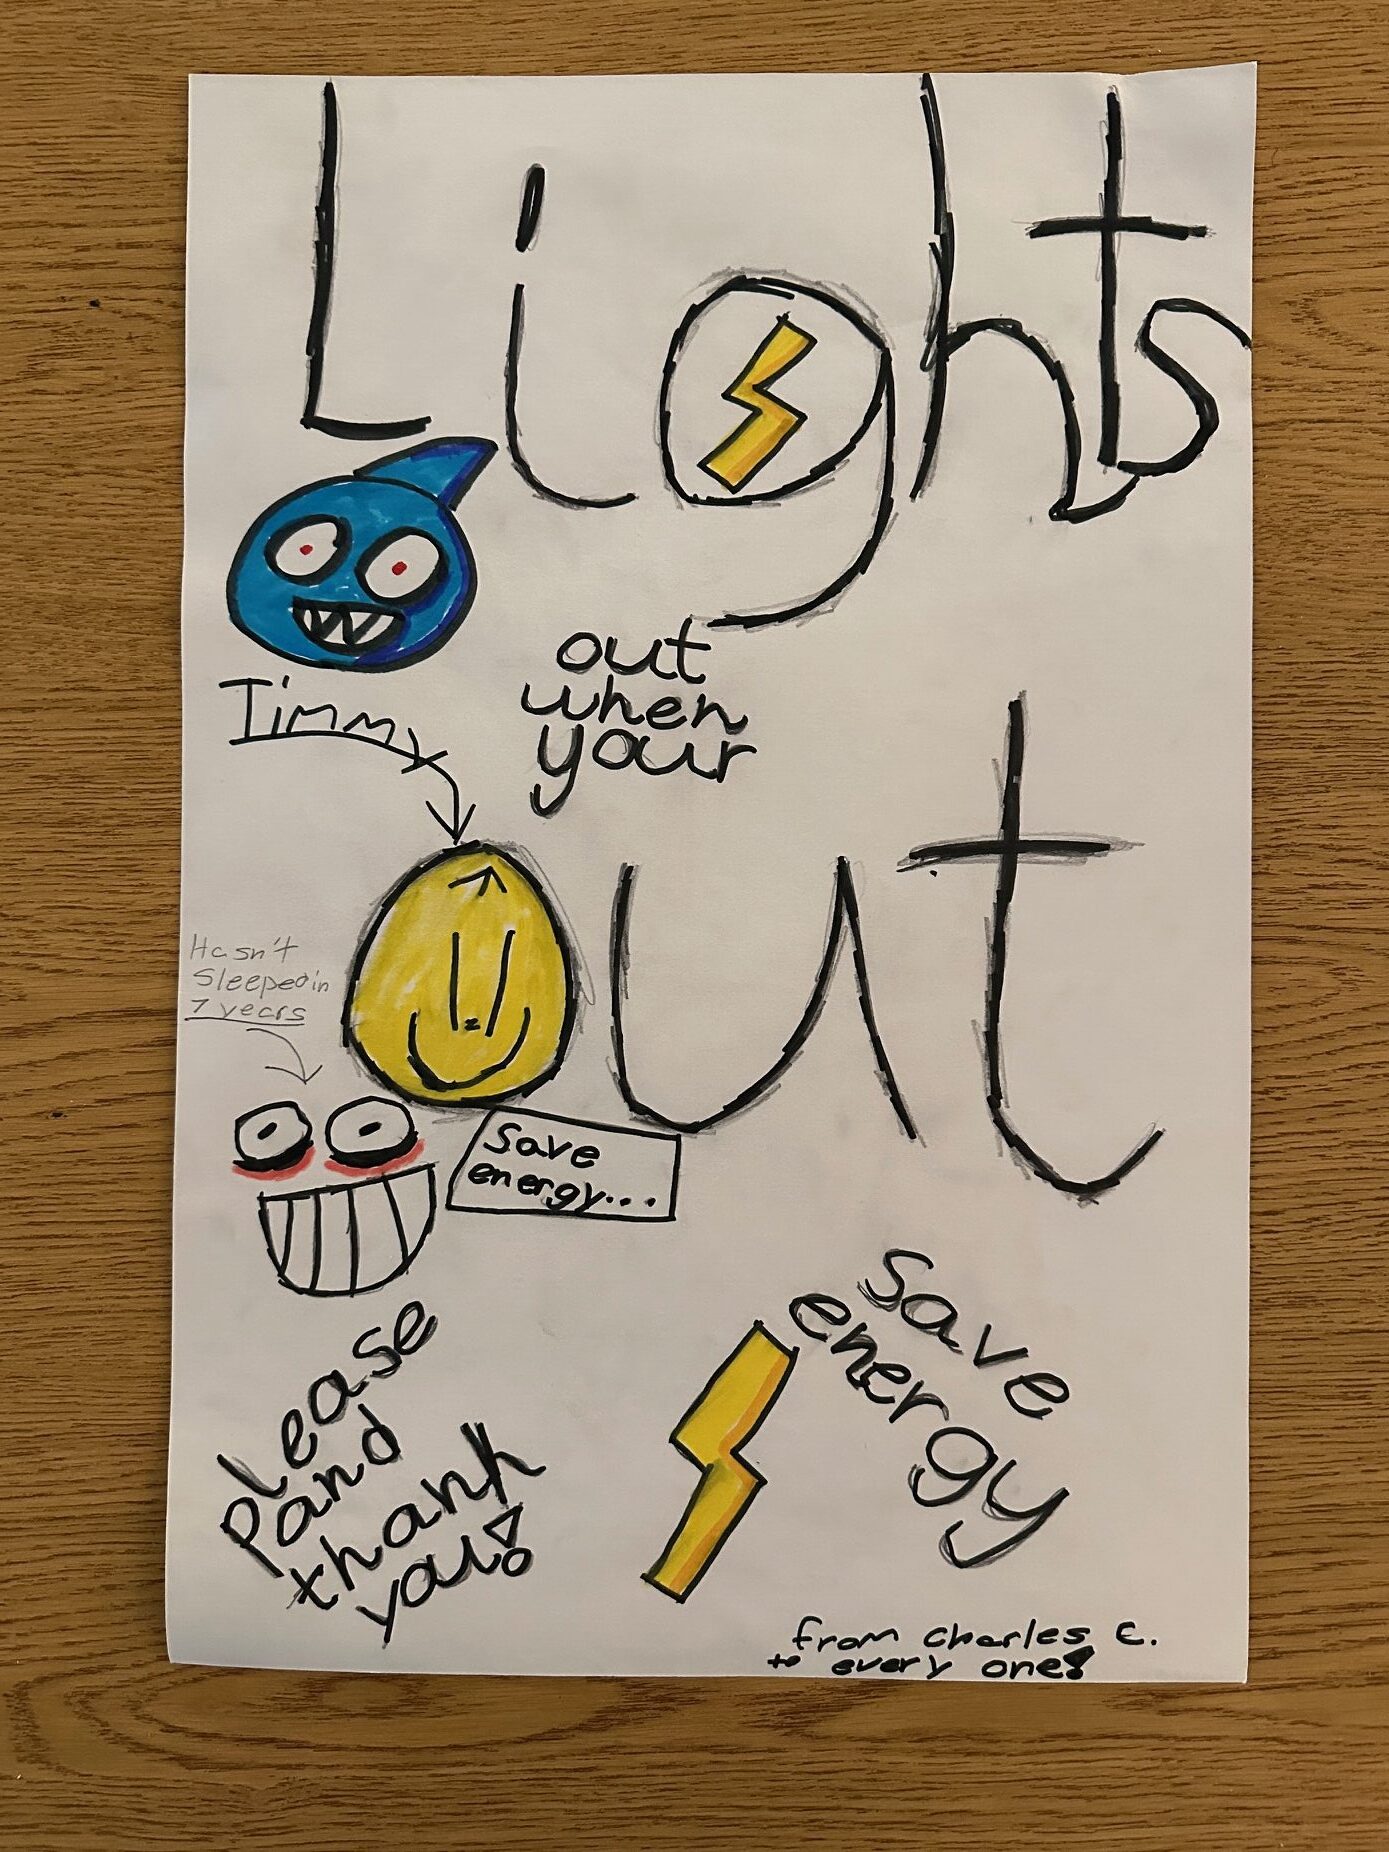 Lights
out
when
your
out
Timmy
Hasn't
Sleeped in
7 years
Save
energy...
Please
and
thank
you!
Save
energy
from Charles C.
to every one!